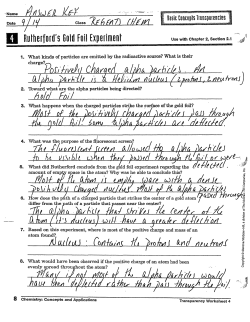 Name ANSWER KEY
Date 9/14 Class REGENTS CHEM
Basic Concepts Transparencies
4 Rutherford's Gold Foil Experiment Use with Chapter 2, Section 2.1
1. What kinds of particles are emitted by the radioactive source? What is their charge?
Positively Charged alpha particles. An
alpha particle is a Helium nucleus (2 protons, 2 neutrons)
2. Toward what are the alpha particles being directed?
Gold Foil
3. What happens when the charged particles strike the surface of the gold foil?
Most of the positively charged particles pass through
the gold foil, some alpha particles are deflected
4. What was the purpose of the fluorescent screen?
The fluorescent screen allowed the alpha particles
to be visible when they passed through the foil or were
5. What did Rutherford conclude from the gold foil experiment regarding the
amount of empty space in the atom? Why was he able to conclude this?
Most of the Atom is empty were with a dense
positively charged nucleus. Most of the alpha particles passed through
6. How does the path of a charged particle that strikes the center of the particle atom
differ from the path of a particle that passes near the center?
The alpha particle that strikes the center of the
atom (it's nucleus) will have a greater deflection
7. Based on this experiment, where is most of the positive charge and mass of an
atom found?
Nucleus: Contains the protons and neutrons
8. What would have been observed if the positive charge of an atom had been
evenly spread throughout the atom?
Many if not most of the alpha particles would
have been deflected rather than pass through the foil.
8 Chemistry: Concepts and Applications Transparency Worksheet 4